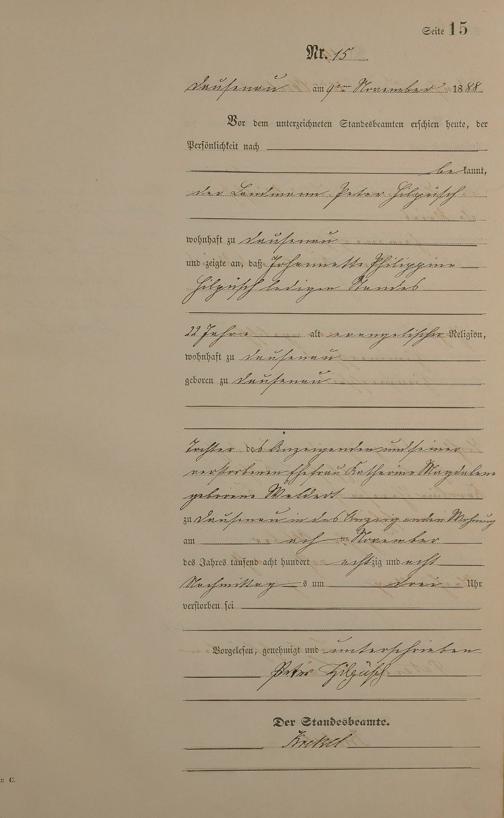 Seite 15
Nr. 15
Dausenau am 9ten November 1888
Vor dem unterzeichneten Standesbeamten erschien heute, der
Persönlichkeit nach
bekannt,
der Landmann Peter Hilpüsch
wohnhaft zu Dausenau
und zeigte an, daß Johannette Philippine
Hilpüsch ledigen Standes
22 Jahre alt evangelischer Religion,
wohnhaft zu Dausenau
geboren zu Dausenau
Tochter des Anzeigenden und seiner
verstorbenen Ehefrau Katharine Magdalene
geborene
zu Dausenau in des Anzeigenden Wohnung
am November
des Jahres tausend acht hundert achtzig und acht
Nachmittags um drei Uhr
verstorben sei
Vorgelesen, genehmigt und unterschrieben
Peter Hilpüsch
Der Standesbeamte.
C.